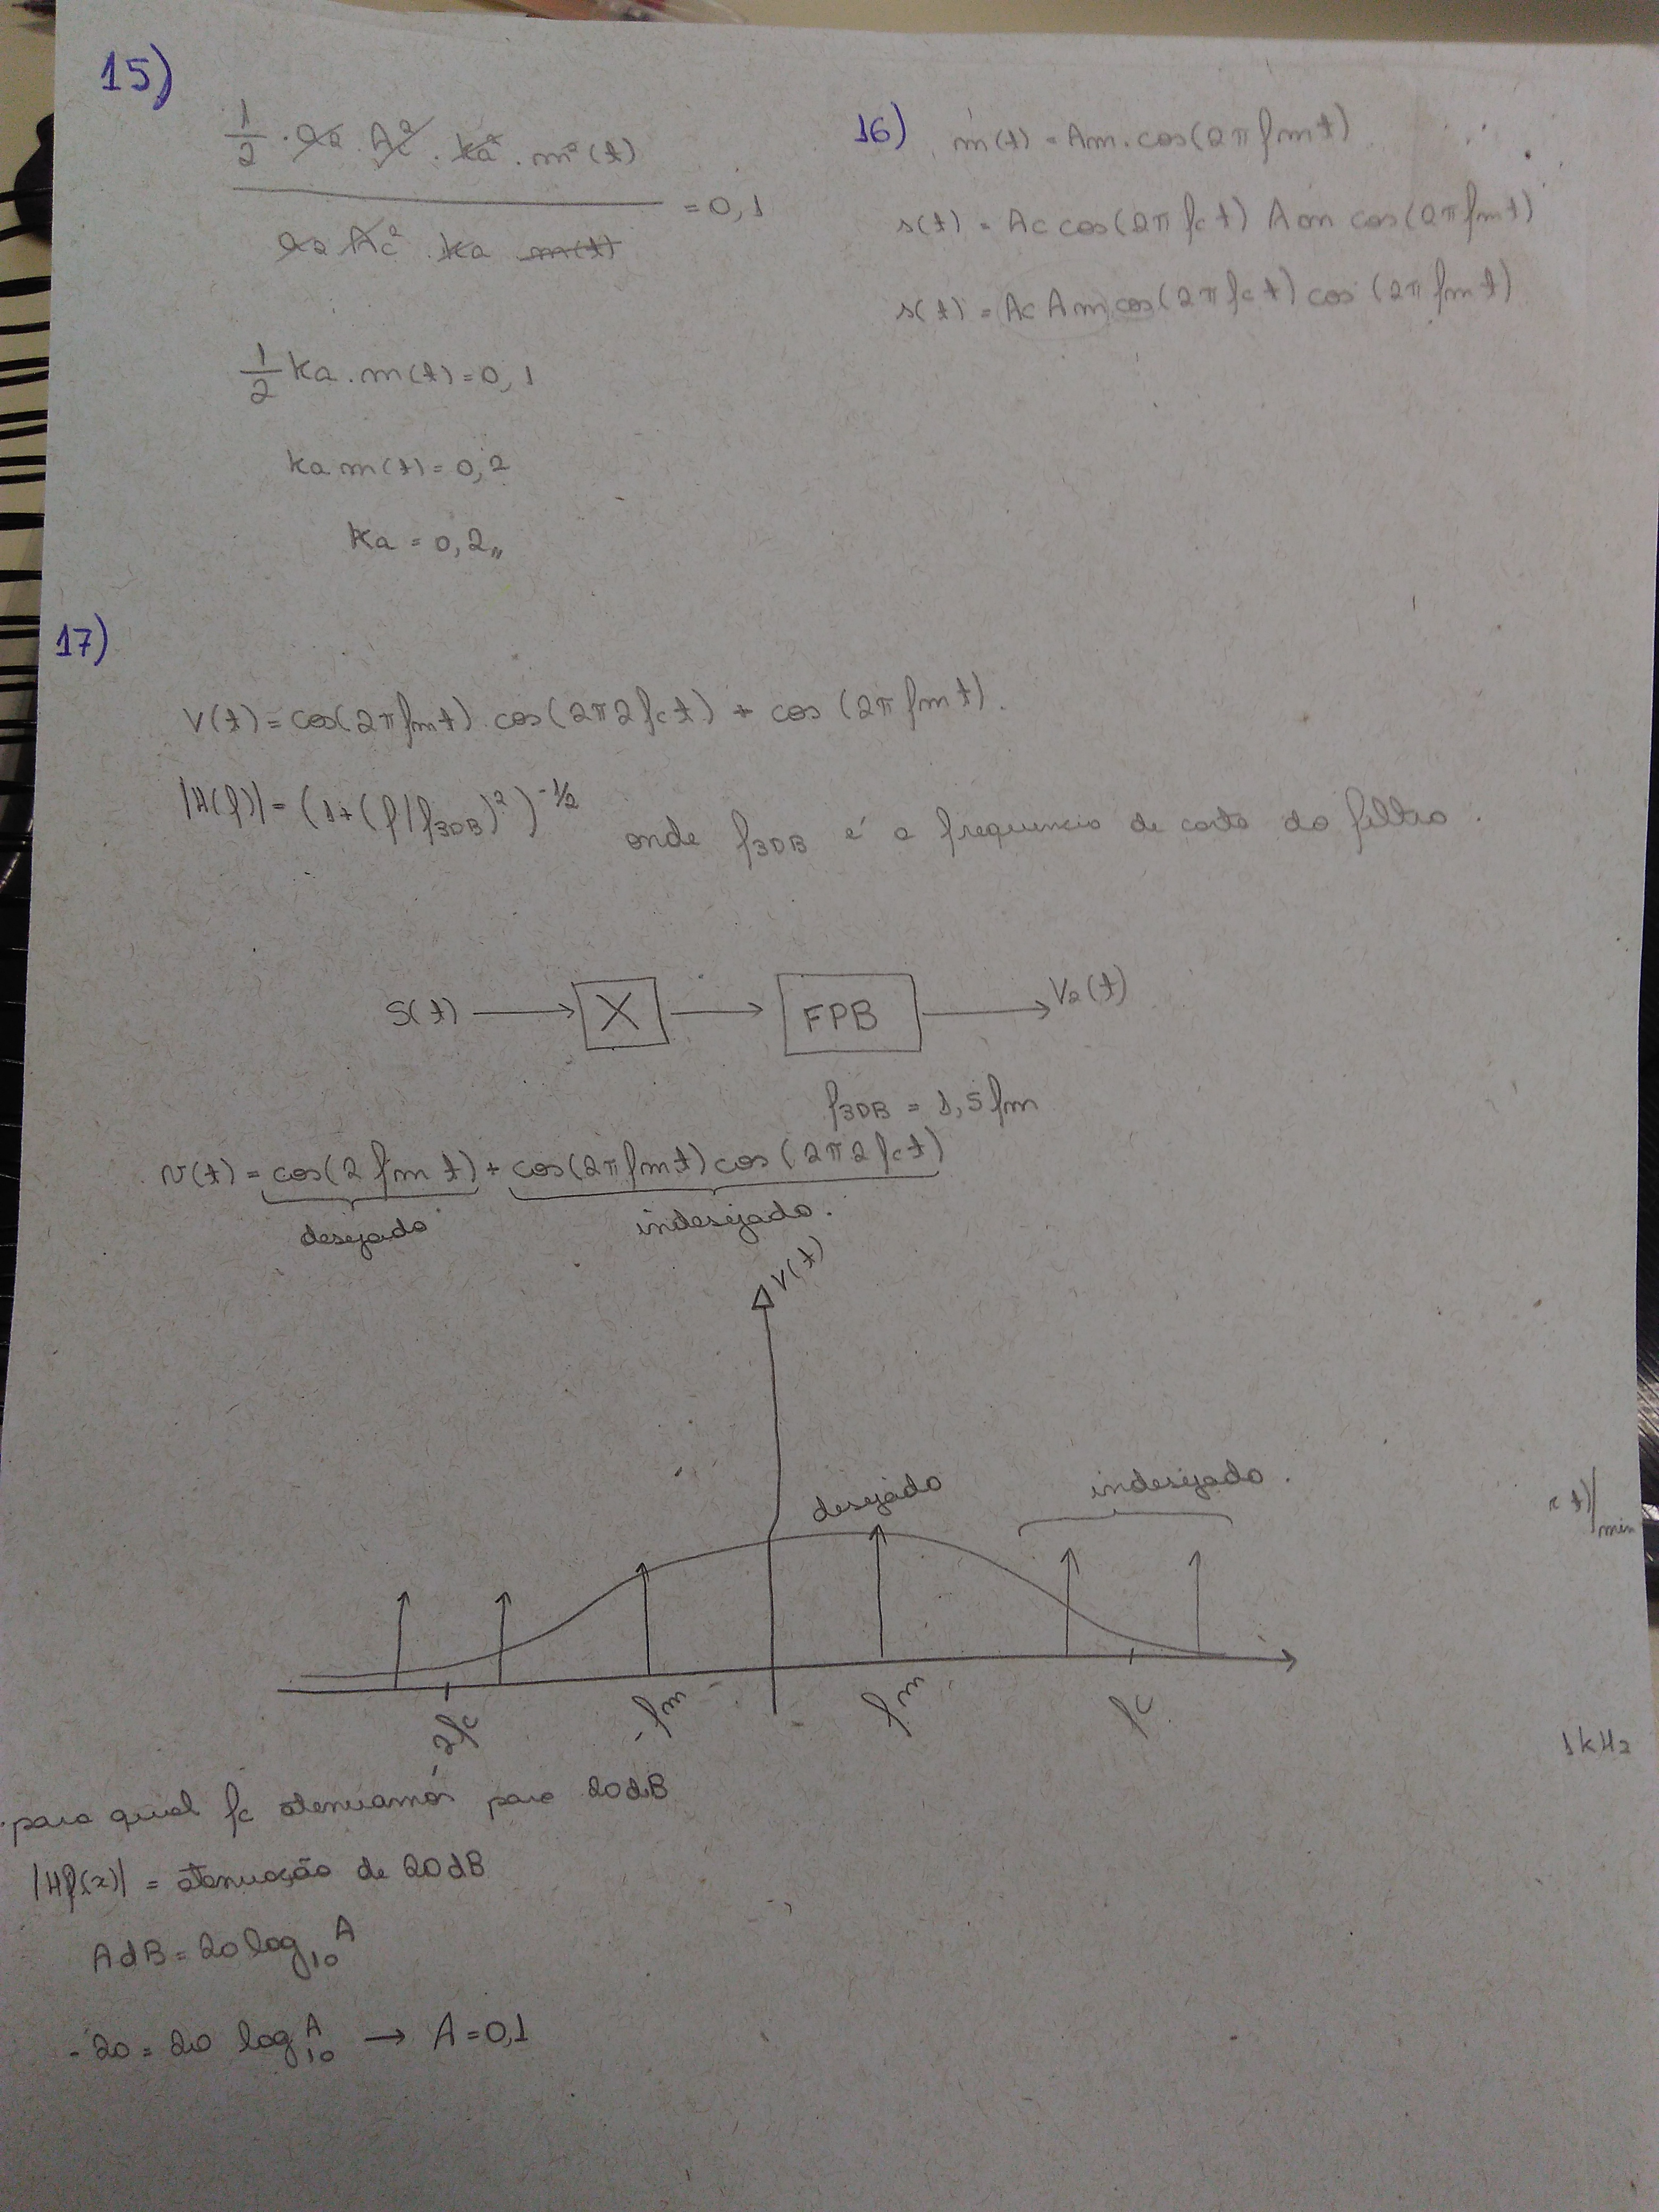 15)
1/2 · a2 · Ac² · ka² · m²(t)
a2 Ac² · ka m(t) = 0,1
1/2 ka . m(t) = 0,1
ka m(t) = 0,2
ka = 0,2,,
16) m(t) = Am . cos(2π fm t)
s(t) = Ac cos(2π fc t) Am cos(2π fm t)
s(t) = Ac Am cos(2π fc t) cos (2π fm t)
17)
V(t) = cos(2π fm t) cos(2π 2 fc t) + cos (2π fm t).
|H(f)| = (1 + (f/f3DB)²)^-1/2 onde f3DB é a frequencia de corte do filtro.
S(t) → X → FPB → V2(t)
f3DB = 1,5 fm
v(t) = cos(2 fm t) + cos(2π fm t) cos (2π 2 fc t)
desejado indesejado.
V(t)
desejado indesejado.
-2fc -fm fm fc
t)| min
1 kHz
para qual fc atenuamos para 20dB
|Hf(x)| = atenuação de 20dB
AdB = 20 log10 A
-20 = 20 log10 A → A = 0,1